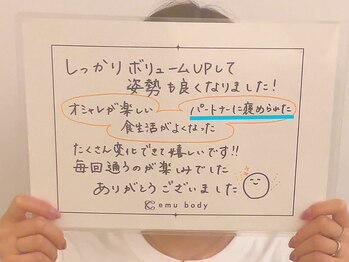 しっかりボリュームUPして
姿勢も良くなりました!
オシャレが楽しい
パートナーに褒められた
食生活がよくなった
たくさん変化できて嬉しいです!!
毎回通うのが楽しみでした
ありがとうございました
emu body